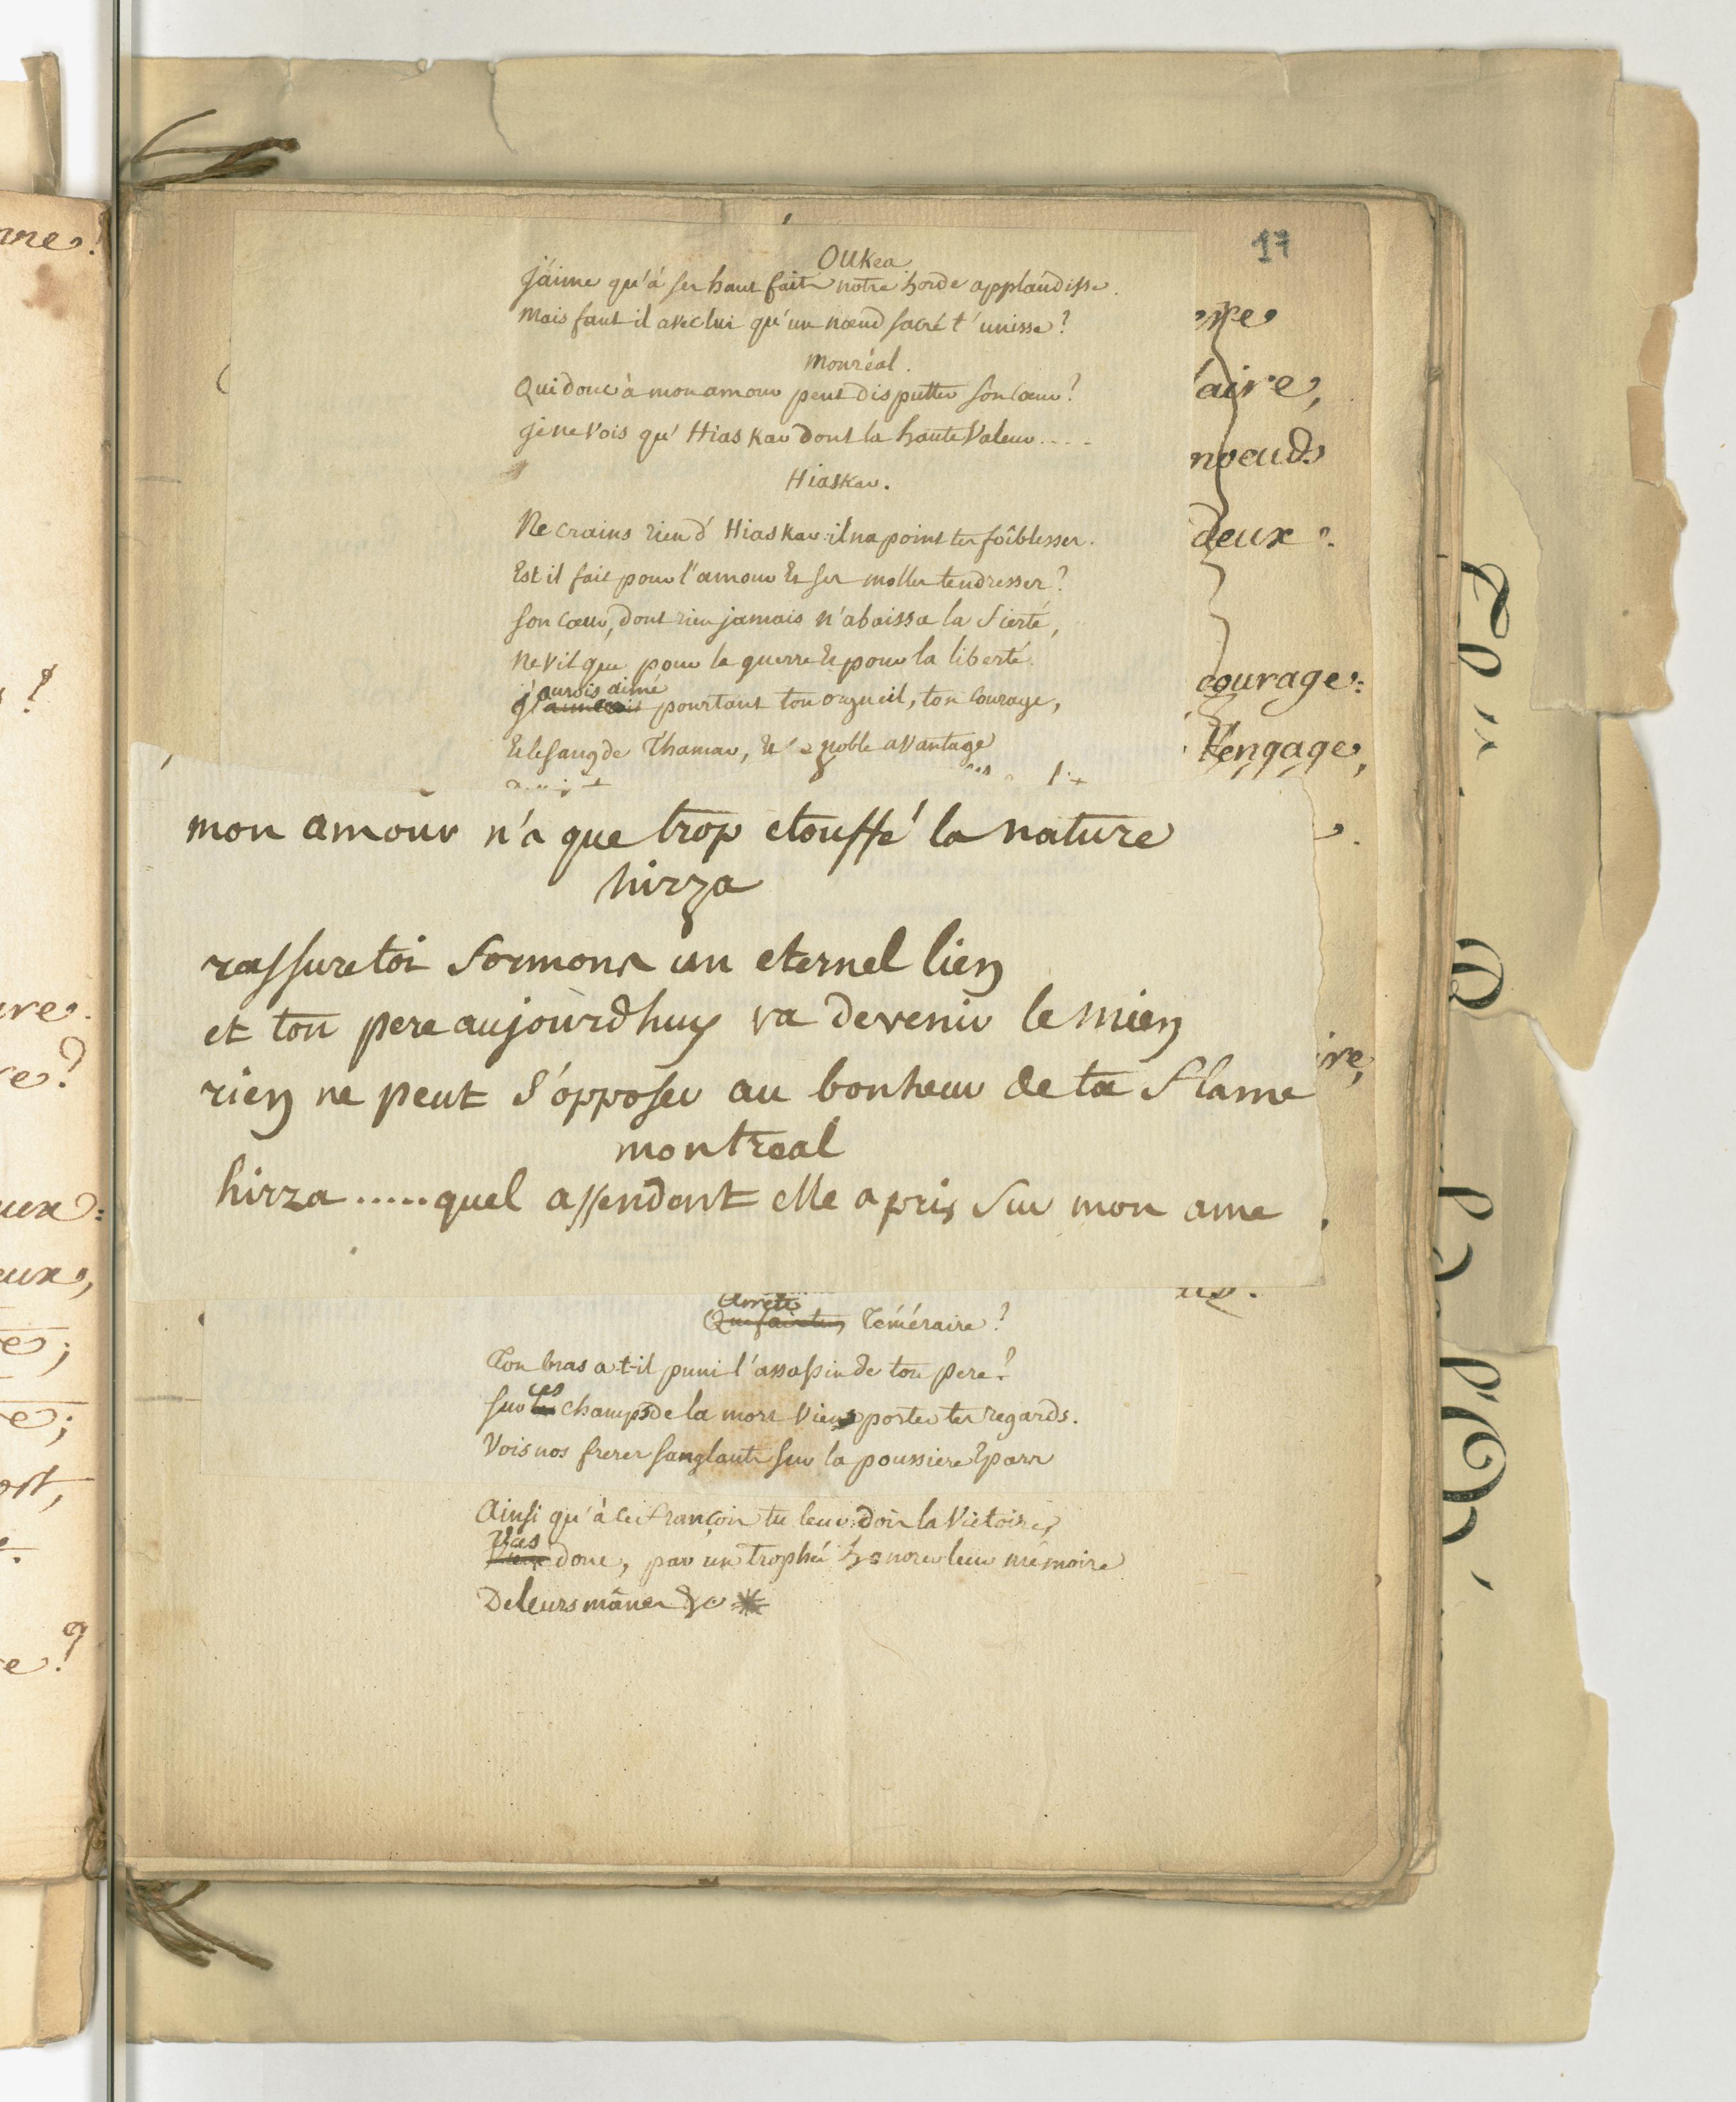 17
Oukea
j'aime qu'à ses haut faits notre horde applaudisse.
Mais faut il avec lui qu'un nœud sacré t'unisse?
Monréal.
Qui donc à mon amour peut disputter son cœur?
je ne vois qu'Hiaskar dont la haute Valeur....
Hiaskar.
Ne crains rien d'Hiaskar il na point tes foiblesses.
Est il fait pour l'amour Et ses molles tendresses?
son cœur, dont rien jamais n'abaissa la fierté,
ne vit que pour la guerre Et pour la liberté.
aurois aimé
j' pourtant ton orgueil, ton courage,
Et le sang de Thamar, Et noble avantage
mon amour n'a que trop etouffé la nature
hirza
rassure toi formons un eternel lien
et ton pere aujourdhuy va devenir le mien
rien ne peut s'opposer au bonheur de ta flame
montreal
hirza .....quel assendant elle a pris sur mon ame
Arrête
Que fais tu Téméraire?
Ton bras a t-il puni l'assassin de ton pere?
ces
sur les champs de la mort Viens porter tes regards.
Vois nos freres sanglants sur la poussiere Epars
Ainsi qu'à ces françois tu leur dois la Victoire,
Vas
Viens donc, par un trophée honorer leur mémoire
De leurs mânes &c
laire,
nœuds
deux
courage:
t'engage,